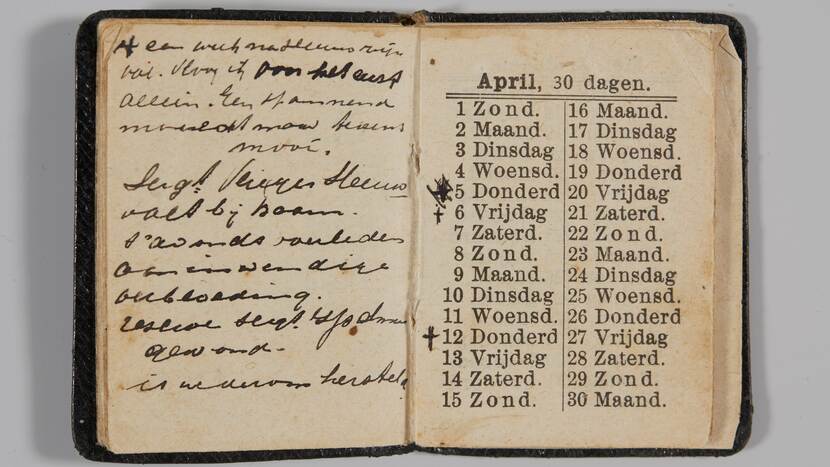 een week na Steensma's
val. Vloog ik voor het eerst
alleen. Een spannend
moment maar tevens
mooi.
Sergt. Vlieger Steens
valt bij Baarn.
s'avonds overleden
aan inwendige
verbloeding.
reserve sergt.
gewond.
is wederom hersteld
April, 30 dagen.
1 Zond.
2 Maand.
3 Dinsdag
4 Woensd.
5 Donderd
6 Vrijdag
7 Zaterd.
8 Zond.
9 Maand.
10 Dinsdag
11 Woensd.
12 Donderd
13 Vrijdag
14 Zaterd.
15 Zond.
16 Maand.
17 Dinsdag
18 Woensd.
19 Donderd
20 Vrijdag
21 Zaterd.
22 Zond.
23 Maand.
24 Dinsdag
25 Woensd.
26 Donderd
27 Vrijdag
28 Zaterd.
29 Zond.
30 Maand.